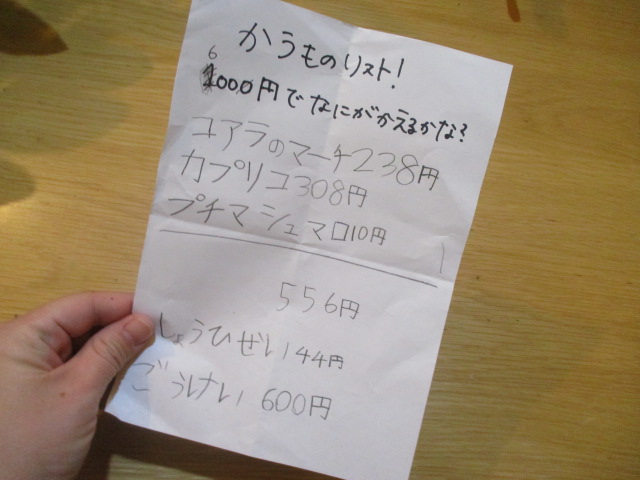 かうものリスト!
6
1000円でなにがかえるかな?
コアラのマーチ238円
カプリコ308円
プチマシュマロ10円
556円
しょうひぜい44円
ごうけい600円